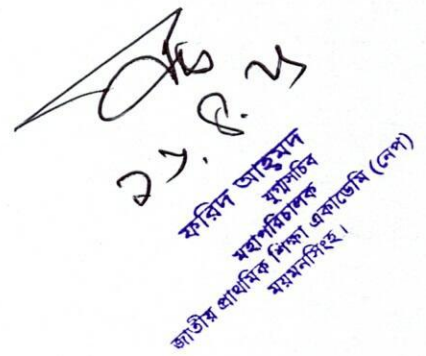 ফরিদ আহম্মদ
যুগ্মসচিব
মহাপরিচালক
জাতীয় প্রাথমিক শিক্ষা একাডেমি (নেপ)
ময়মনসিংহ।